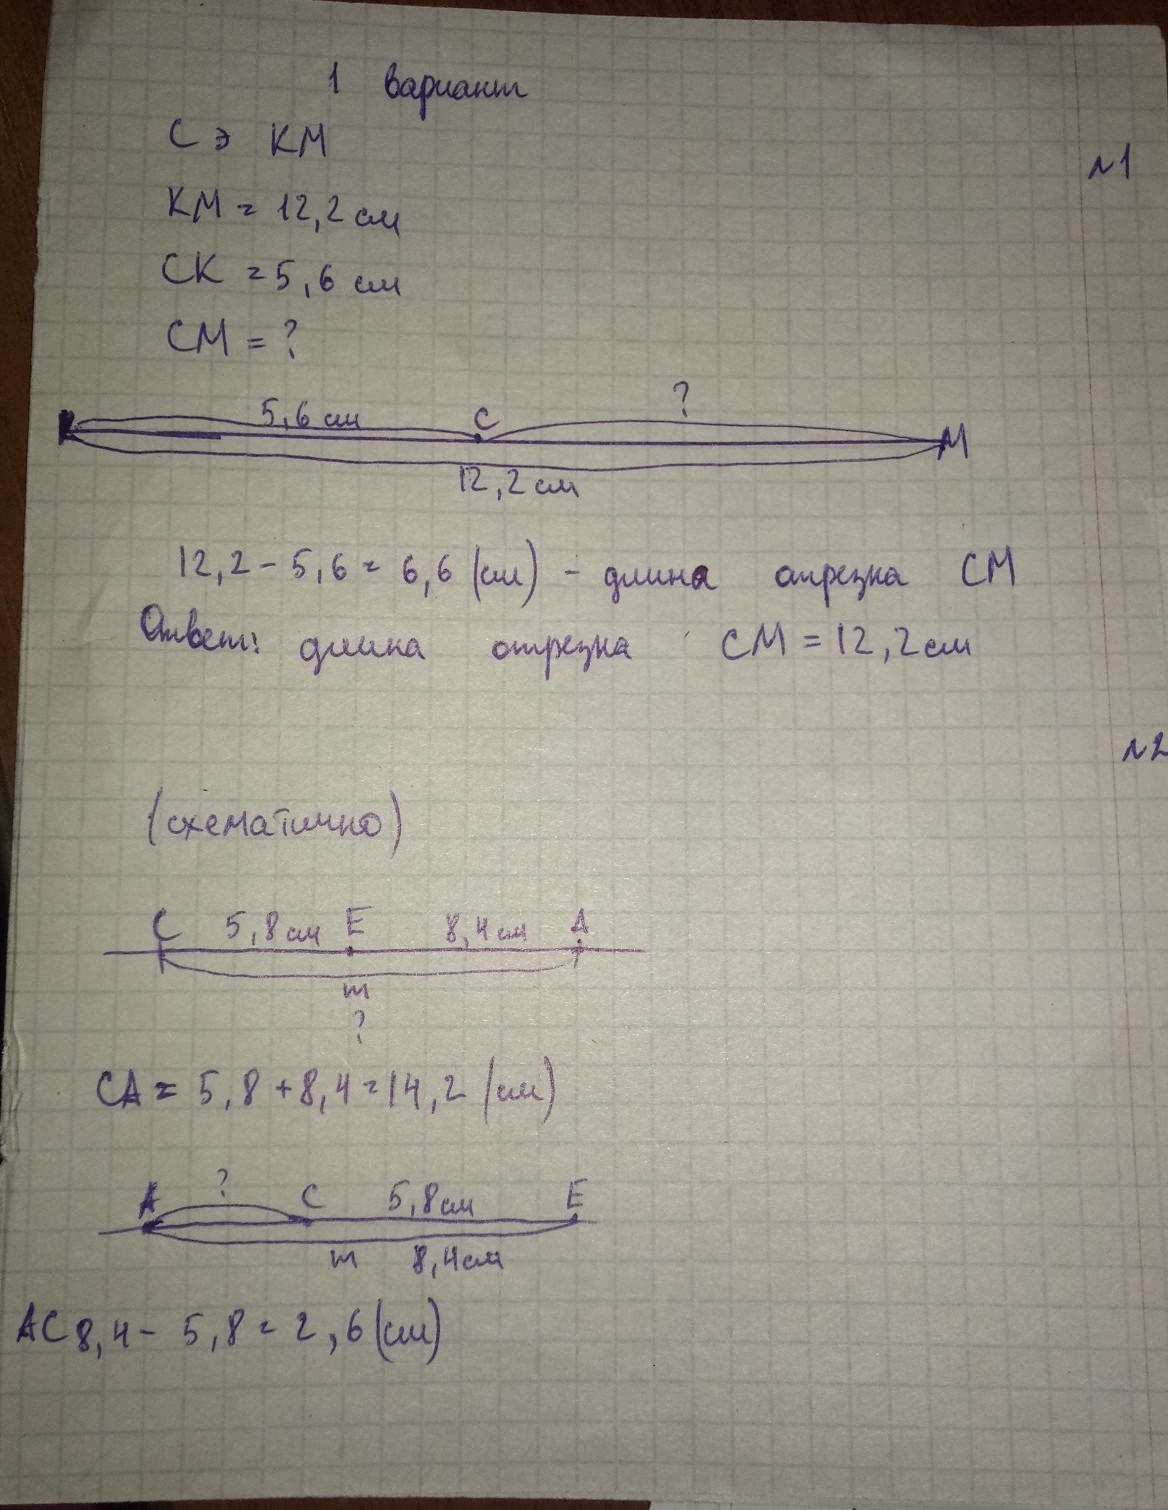 1 вариант
С э КМ
№1
КМ = 12,2 см
СК = 5,6 см
СМ = ?
5,6 см С ?
К М
12,2 см
12,2 - 5,6 = 6,6 (см) - длина отрезка СМ
Ответ: длина отрезка СМ = 12,2 см
№2
(схематично)
С 5,8 см Е 8,4 см А
m
?
СА = 5,8 + 8,4 = 14,2 (см)
?
А С 5,8 см Е
m 8,4 см
АС 8,4 - 5,8 = 2,6 (см)